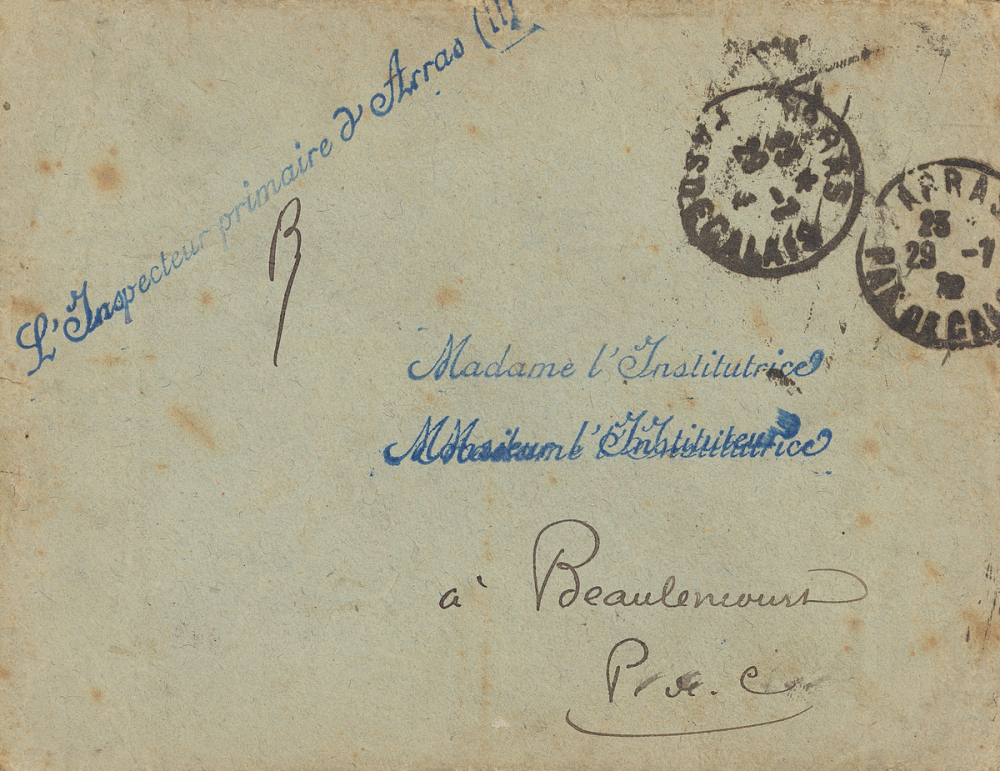 L'Inspecteur primaire d'Arras (II)
ARRAS
PAS DE CALAIS
ARRAS
23
29 -7
22
PAS DE CALAIS
Madame l'Institutrice
à Beaulencourt
P. de. C